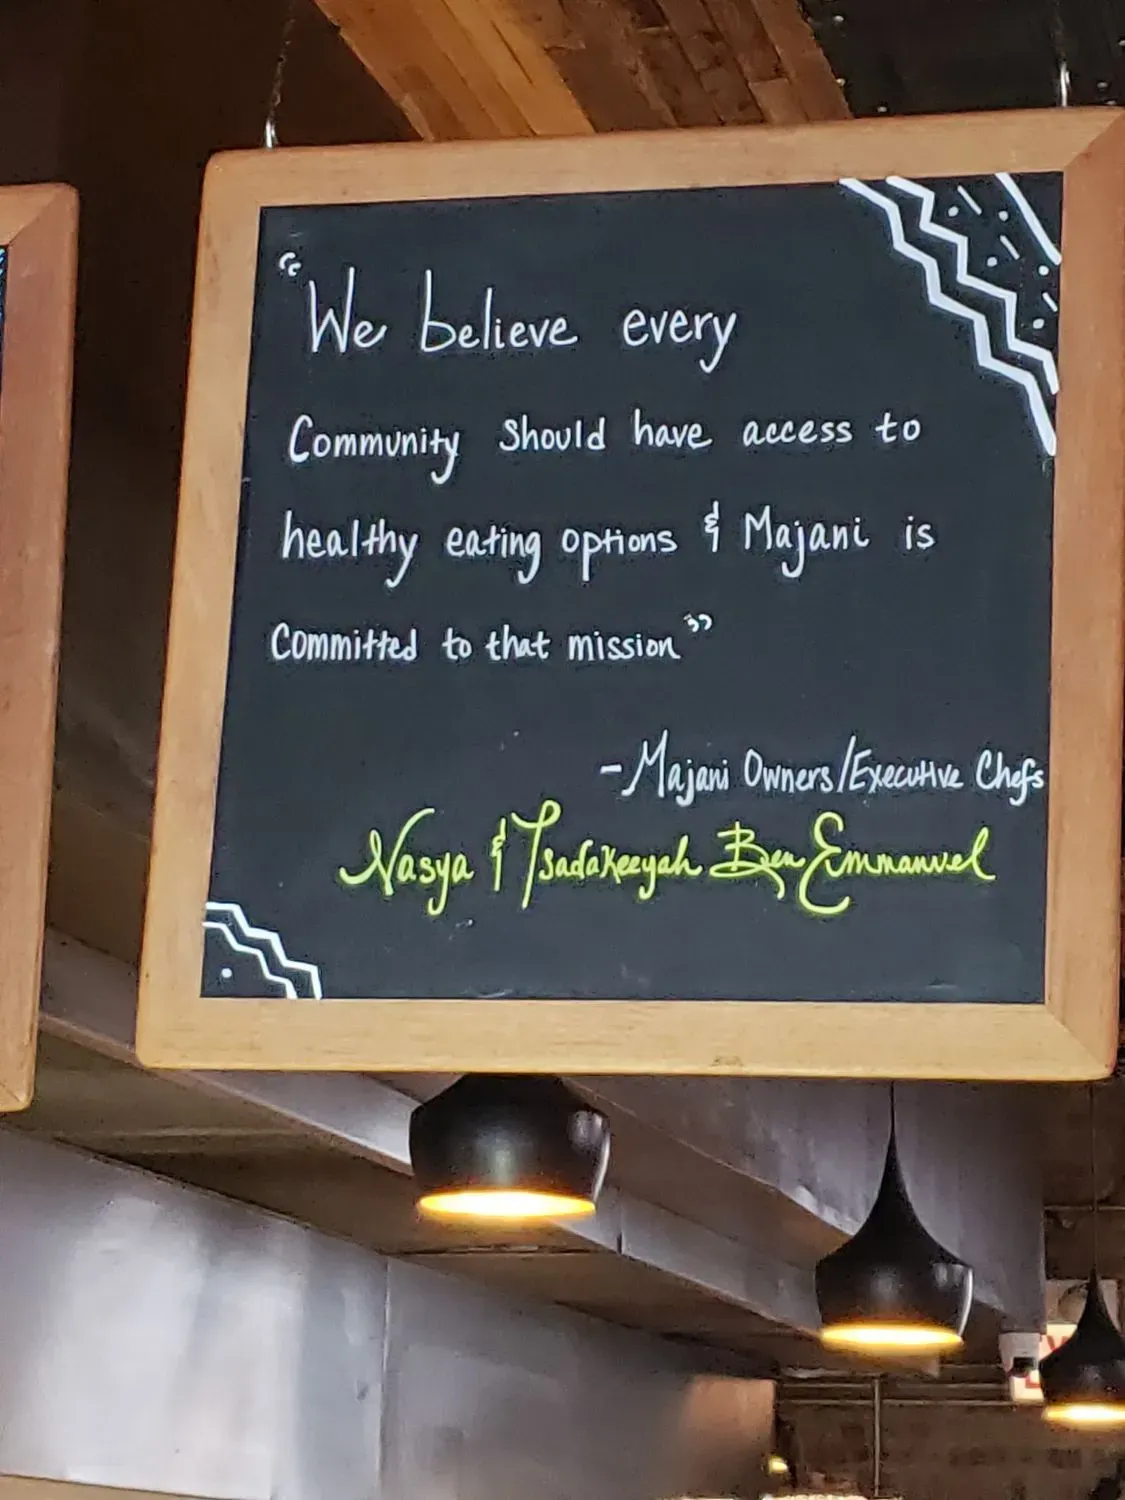 “We believe every
Community Should have access to
healthy eating options & Majani is
Committed to that mission”
-Majani Owners/Executive Chefs
Nasya & Tsadakeeyah Ben Emmanuel